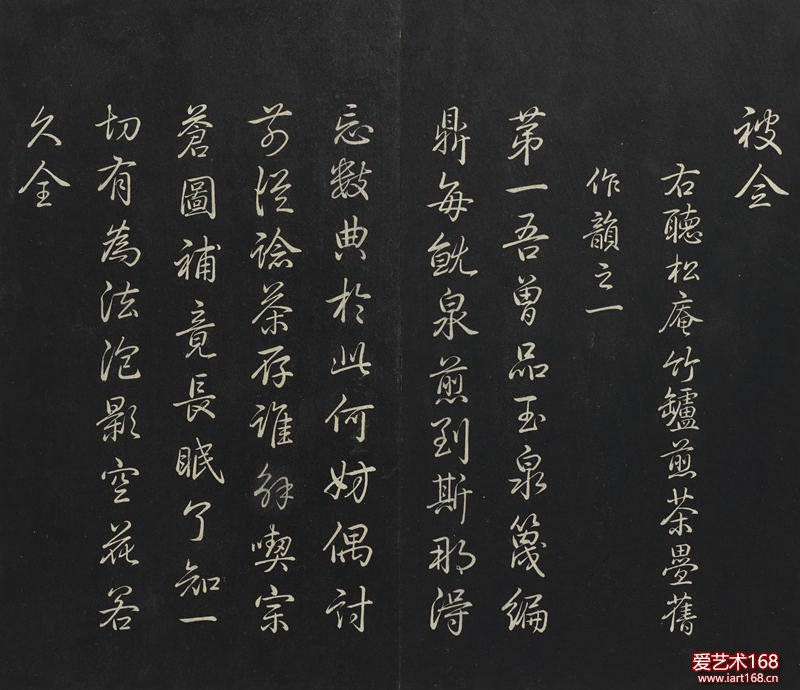 被全
右聽松庵竹鑪煎茶疊舊
作韻之一
第一吾曽品玉泉篾編
鼎每就泉煎到斯那得
忘數典於此何妨偶討
前從諗茶存誰解喫宗
蒼圖補竟長眠了知一
切有為法泡影空花若
久全
爱艺术168
www.iart168.cn